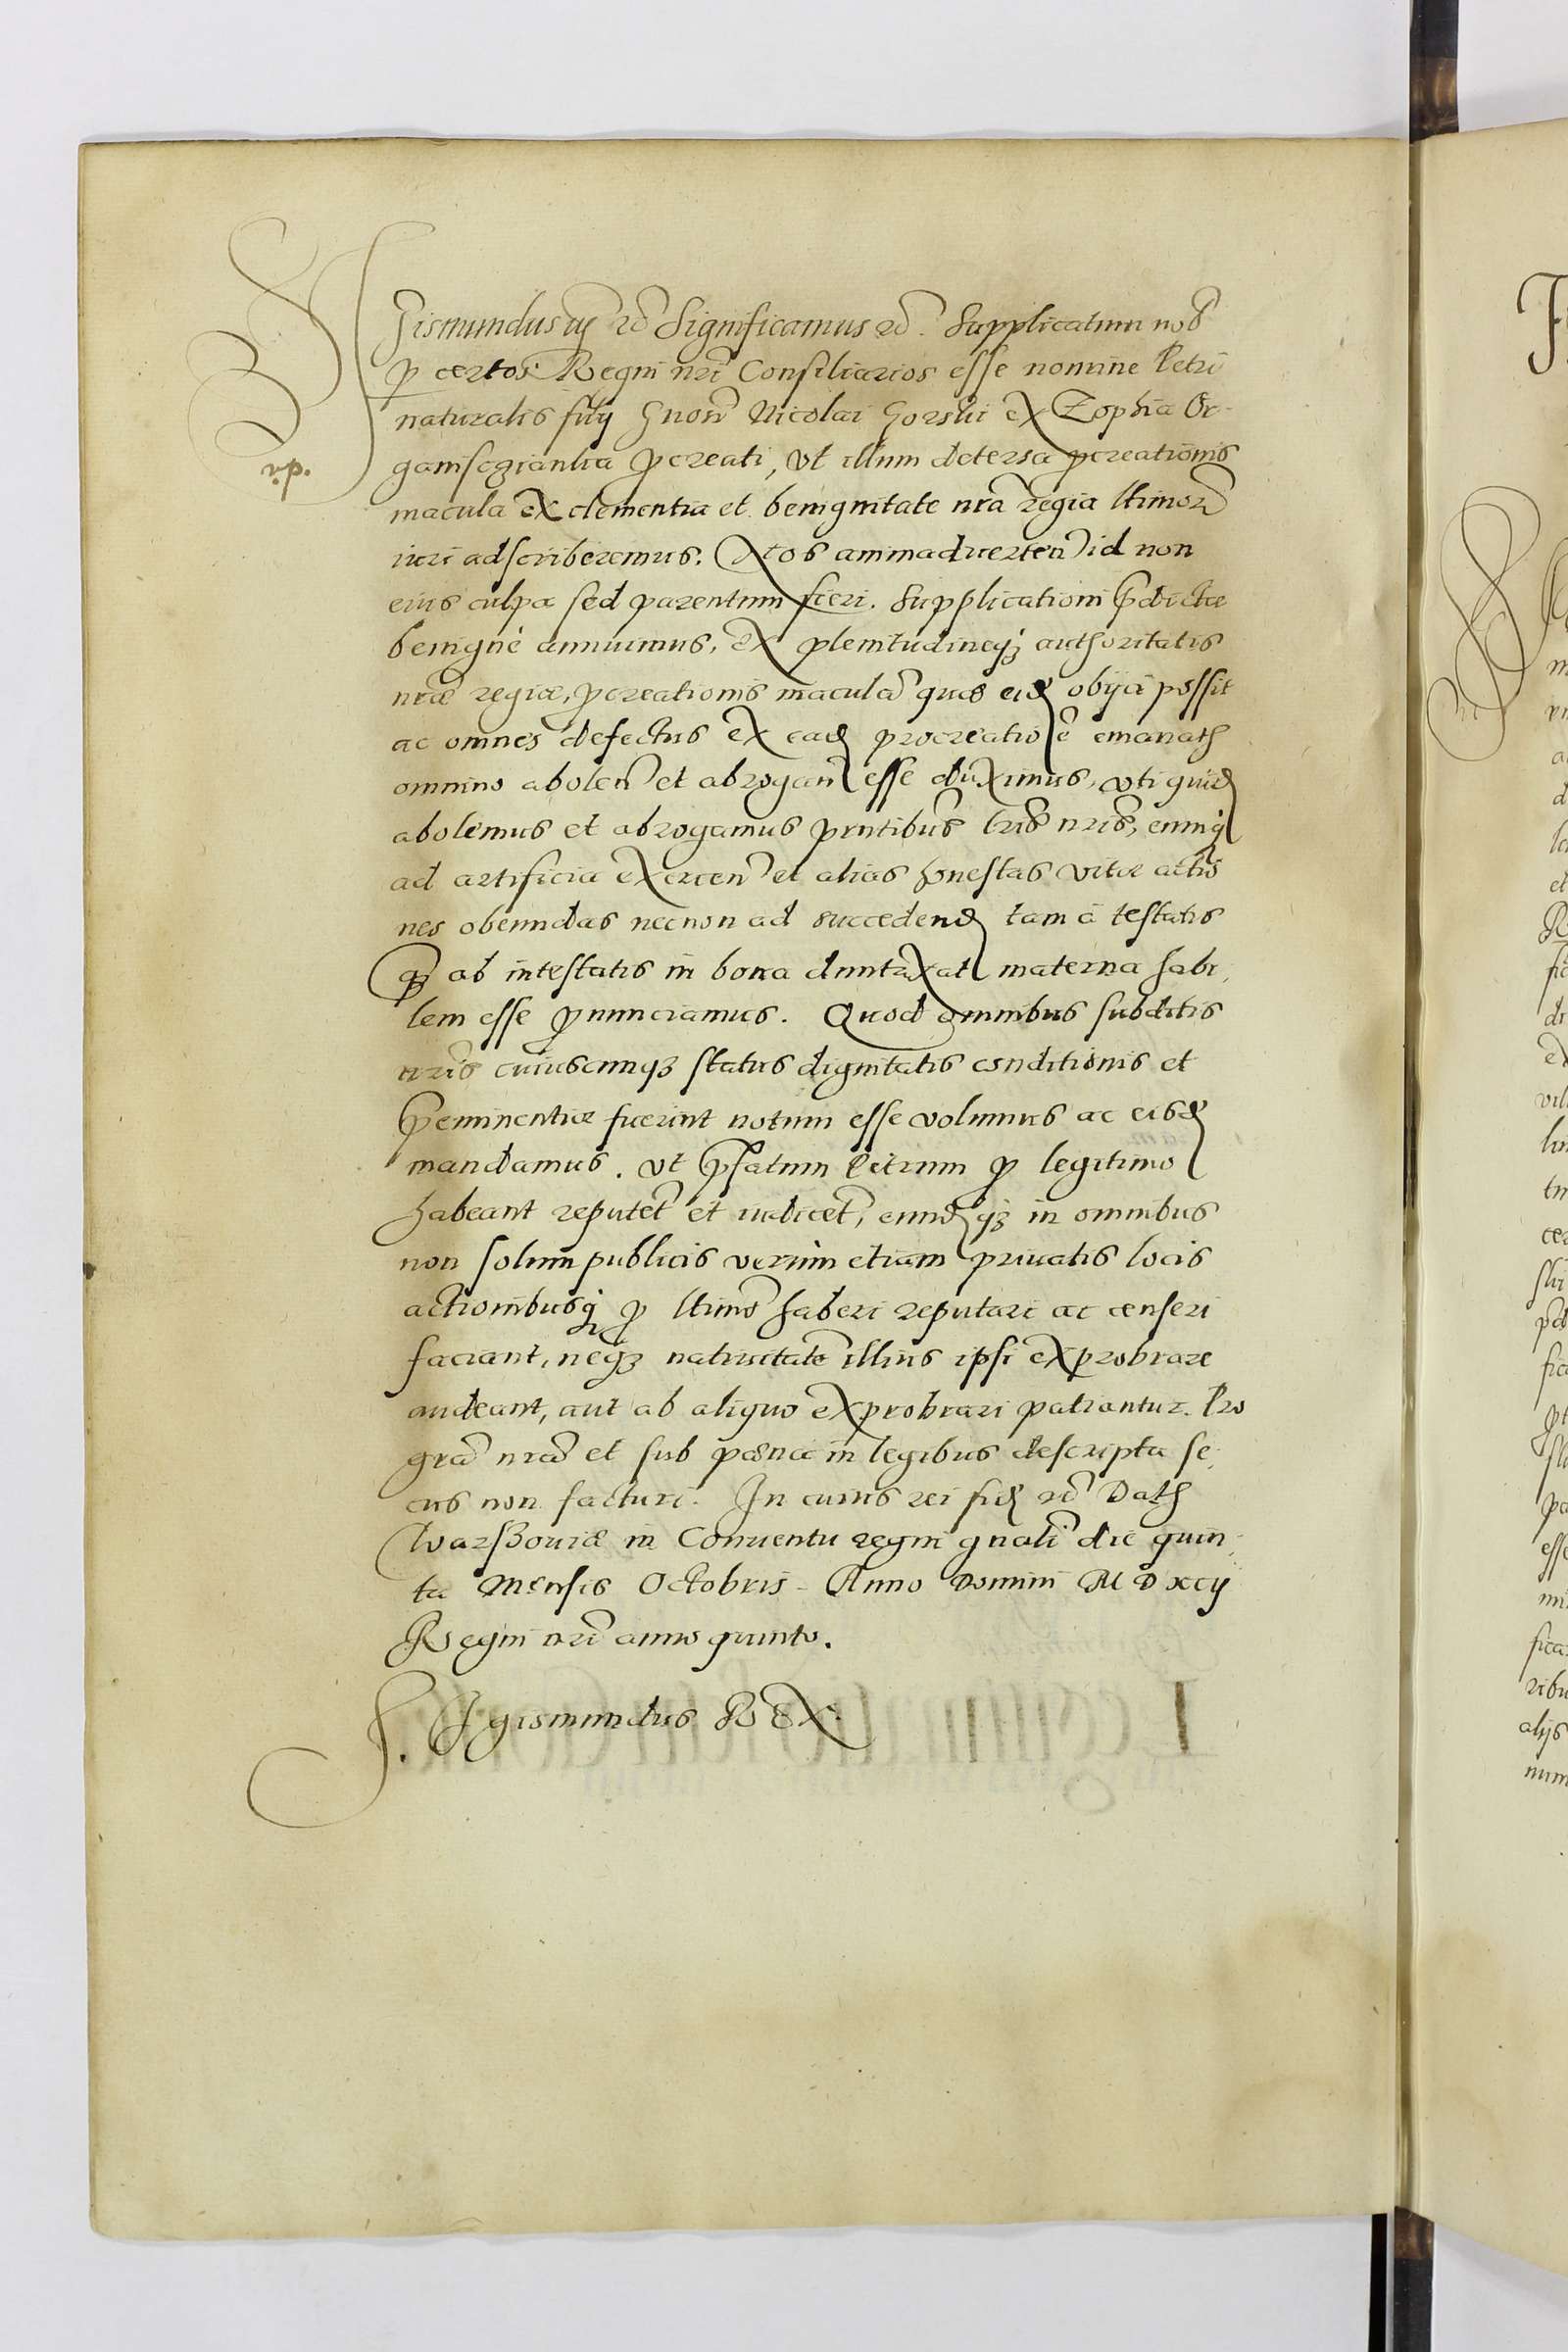 Sigismundus iij rc̃ Significamus rc̃. Supplicatum nob̃
ꝑ certos Regni nr̃i Consiliarios esse nomine Petri
naturalis filij Gnosi Nicolai Gorski ex Zophia Or-
ꝓcreati, vt illum detersa ꝓcreationis
macula ex clementia et benignitate nr̃a regia ltimor̃
iuri adscriberemus. Nos animaduerten̄ id non
eius culpa sed parentum fieri. Supplicationi p̃dictæ
benignè annuimus, Ex plenitudineq̃ authoritatis
nr̃æ regiæ, ꝓcreationis maculã quæ eid obijci possit
ac omnes defectus ex ead procreatioẽ emanatħ
omnino abolen̄ et abrogan̄ esse duximus, vti quid
abolemus et abrogamus pn̄tibus lr̃is nr̃is, eumq
ad artificia exercen̄ et alias honestas vitæ actio
nes obeundas necnon ad succedend tam à testatis
q̃ ab intestatis in bona duntaxat materna habi,
lem esse ꝓnunciamus. Quod omnibus subditis
nr̃is cuiuscunq̃ status dignitatis conditionis et
p̃eminentiæ fuerint notum esse volumus ac eisd
mandamus. vt p̃fatum Petrum ꝓ legitimo
habeant reputet̃ et iudicet̃, eundq̃ in omnibus
non solum publicis verùm etiam priuatis locis
actionibusq ꝓ ltimo haberi reputari ac censeri
faciant, neq̃ natiuitatẽ illius ipsi exprobrare
audeant, aut ab aliquo exprobrari patiantur. Pro
grã nr̃a et sub pœna in legibus descripta se,
cus non facturi. In cuius rei fid rc̃ Datħ
Warßouiæ in Conuentu regni gnali die quin-
ta Mensis Octobris - Anno Domini M D xcij
Regni nr̃i anno quinto.
Sigismundus REX.